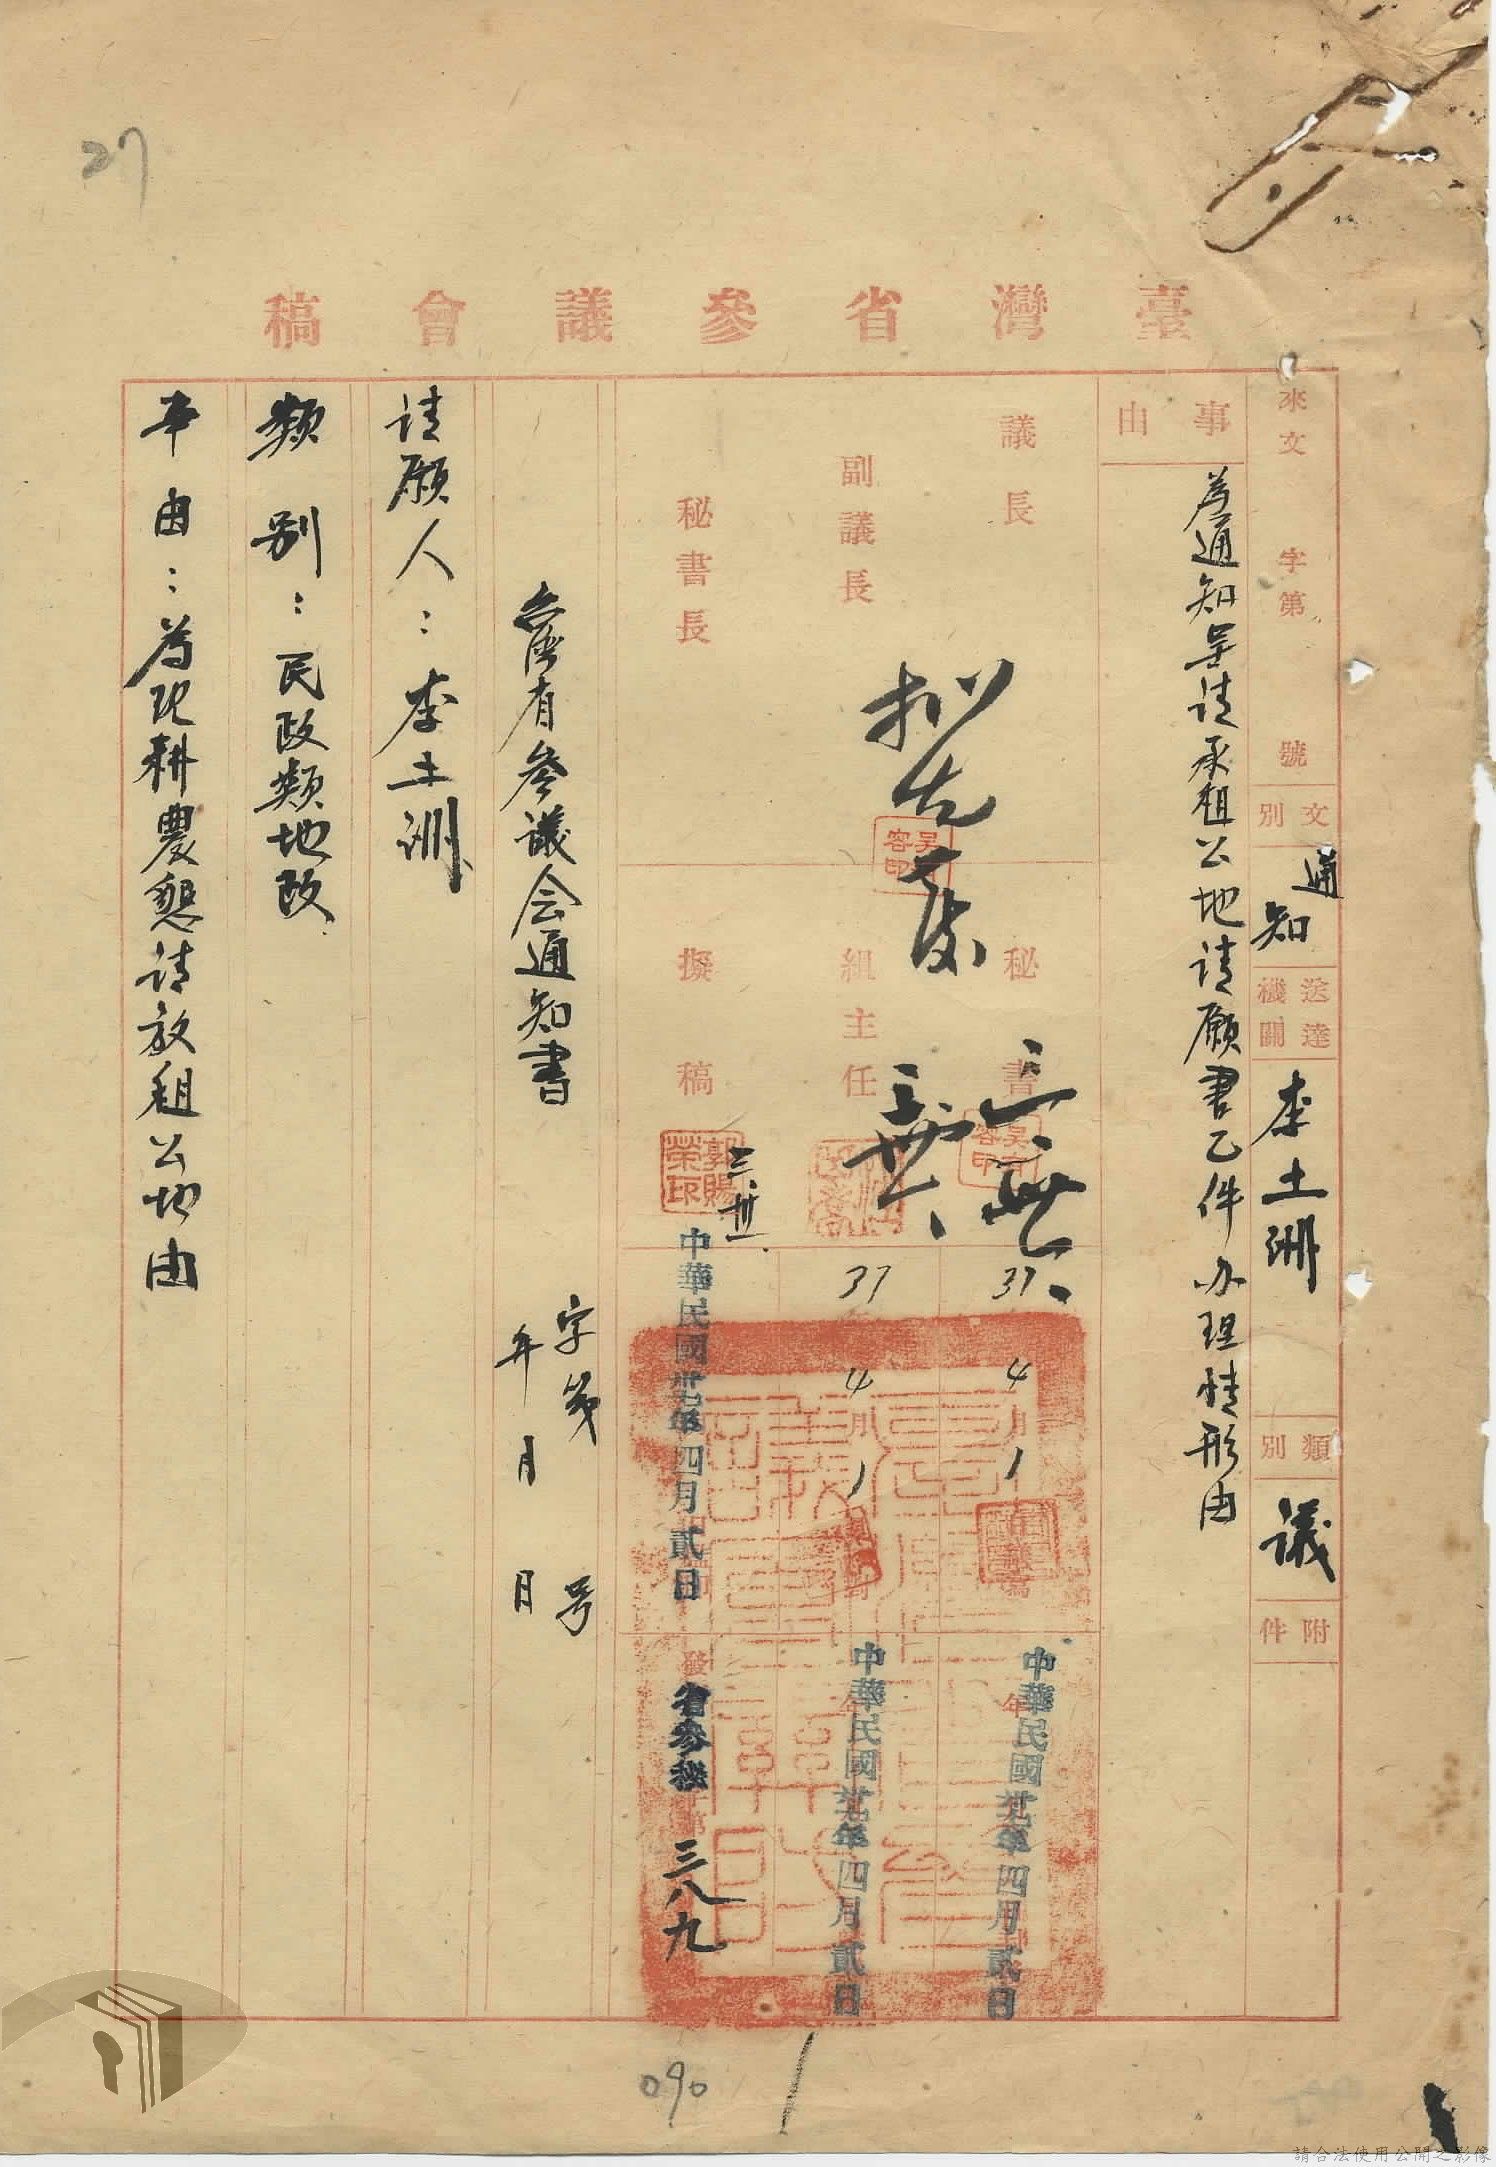 27
臺灣省參議會稿
來文 字第 號
文別 通知
送達機關 李土洲
類別 議
附件
事由 為通知呈请承租公地请願書乙件办理情形由
議長
副議長
秘書長
秘書
組主任
擬稿
郭賜榮印
三、卅一
37 4月1
37 4月1
中華民國卅七年四月貳日
中華民國卅七年四月貳日
中華民國卅七年四月貳日
發 省參秘字第 三八九
省参議会通知書
字第 号
年 月 日
请願人：李土洲
類別：民政類地政
事由：為現耕農懇请放租公地由
090
請合法使用公開之影像